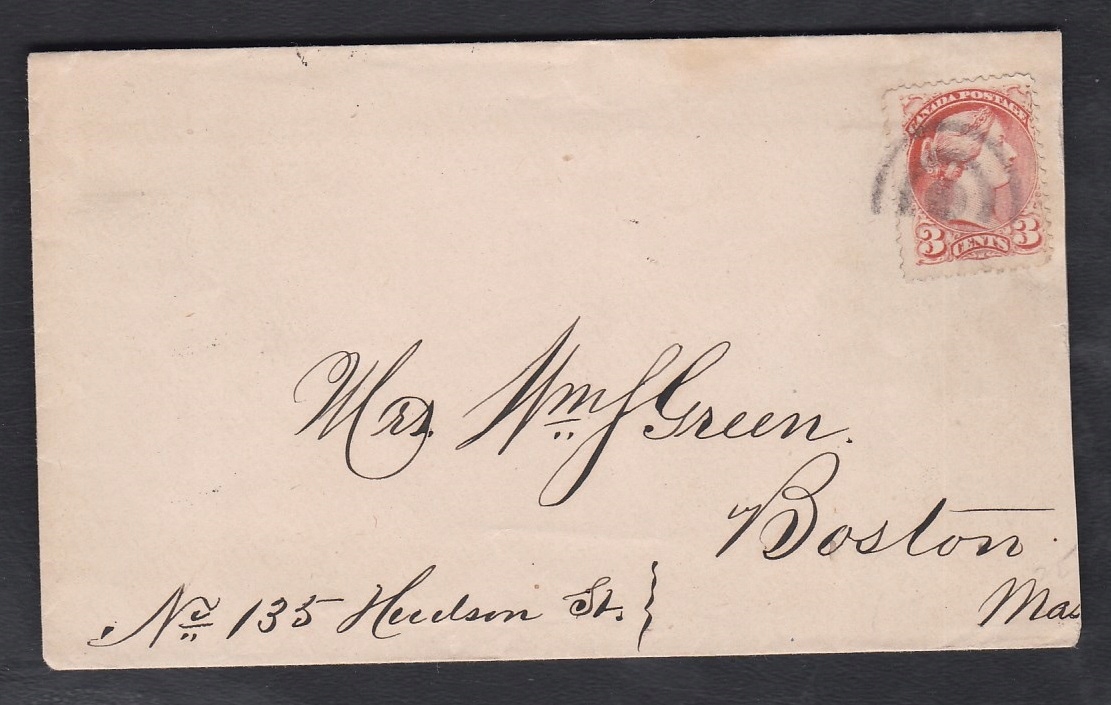 CANADA POSTAGE
3 CENTS 3
Mrs. Wm J Green.
Boston.
No 135 Hudson St.
Mas